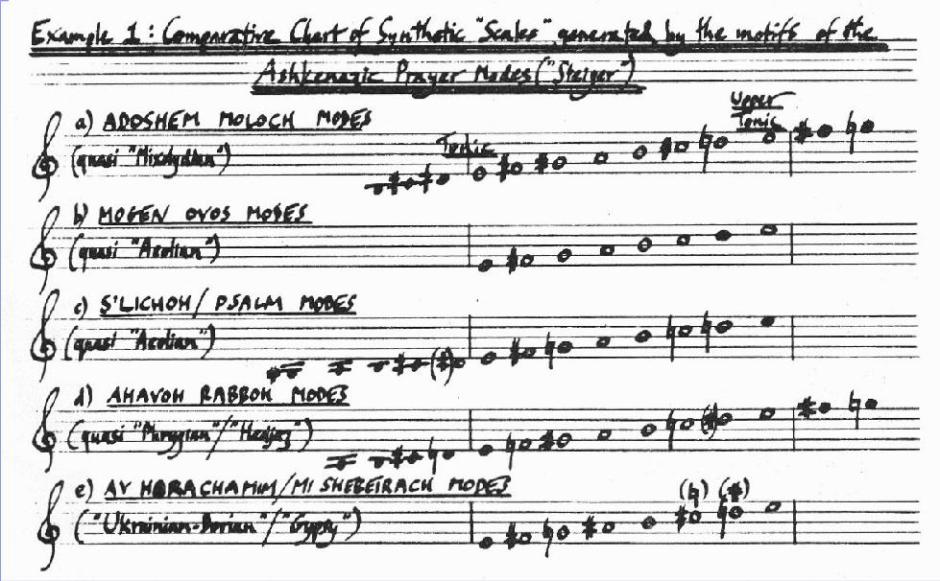 Example 1: Comparative Chart of Synthetic "Scales" generated by the motifs of the
Ashkenazic Prayer Modes ("Steiger")
a) ADOSHEM MOLOCH MODES
(quasi "Mixolydian")
Tonic
Upper
Tonic
b) MOGEN OVOS MODES
(quasi "Aeolian")
c) S'LICHOH/PSALM MODES
(quasi "Aeolian")
d) AHAVOH RABBOH MODES
(quasi "Phrygian"/"Hedjaz")
e) AV HORACHAMIM/MI SHEBEIRACH MODES
("Ukrainian-Dorian"/"Gypsy")